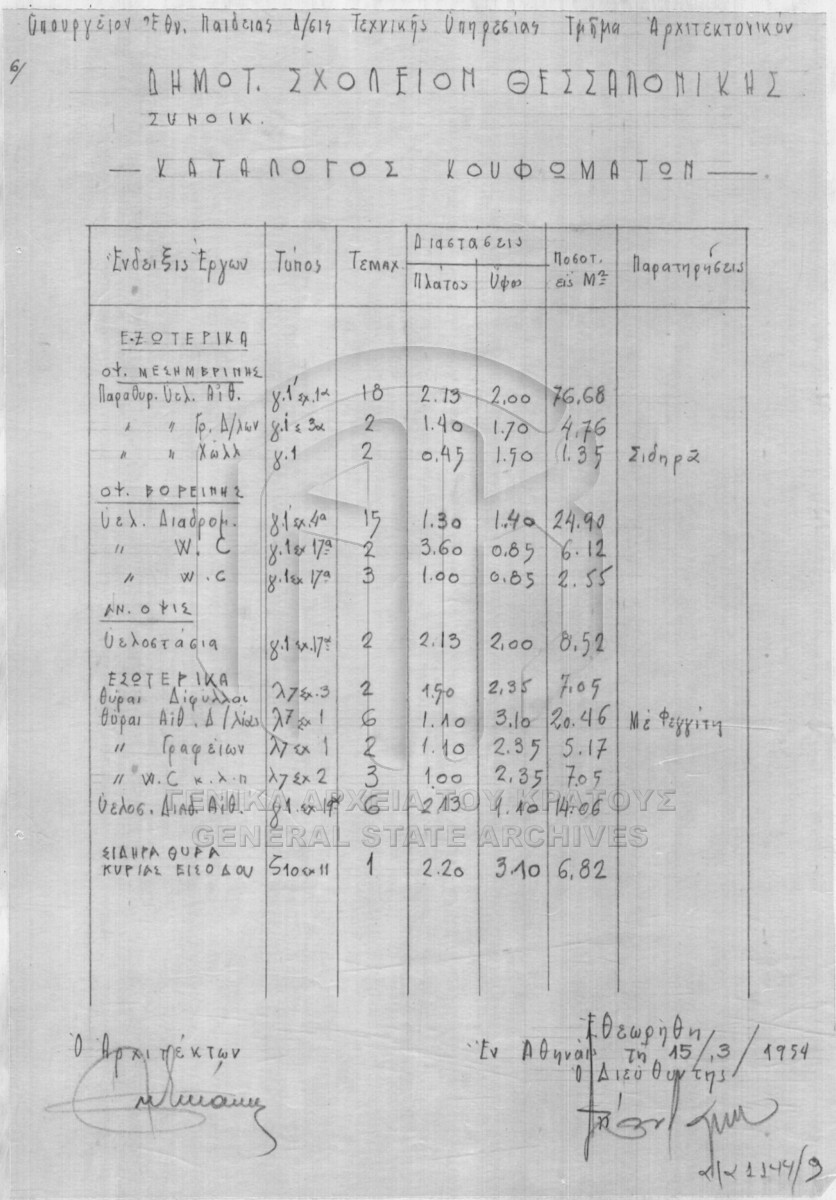 Υπουργείον Εθν. Παιδείας Δ/σις Τεχνικής Υπηρεσίας Τμήμα Αρχιτεκτονικόν
6/
ΔΗΜΟΤ. ΣΧΟΛΕΙΟΝ ΘΕΣΣΑΛΟΝΙΚΗΣ
ΣΥΝΟΙΚ.
— ΚΑΤΑΛΟΓΟΣ ΚΟΥΦΩΜΑΤΩΝ —
Ένδειξις Έργων Τύπος Τεμαχ Διαστάσεις Ποσοτ. εις Μ² Παρατηρήσεις
Πλάτος Ύψος
ΕΞΩΤΕΡΙΚΑ
ΟΨ. ΜΕΣΗΜΒΡΙΝΗΣ
Παραθυρ. Υελ. Αίθ. γ.1 εχ.1α 18 2.13 2,00 76,68
" " Γρ. Δ/λων γ.1 ε 3α 2 1.40 1.70 4,76
" " Χωλλ γ.1 2 0,45 1.50 1.35 Σιδηρά
ΟΨ. ΒΟΡΕΙΝΗΣ
Υελ. Διαδρομ. γ.1 εχ.4α 15 1.30 1.40 24.90
" W.C γ.1 εχ 17α 2 3.60 0.85 6.12
" W.C γ.1 εχ 17α 3 1.00 0,85 2.55
ΑΝ. ΟΨΙΣ
Υελοστάσια γ.1 εχ.17α 2 2.13 2,00 8,52
ΕΣΩΤΕΡΙΚΑ
Θύραι Δίφυλλοι λ7 εχ.3 2 1.50 2,35 7.05
Θύραι Αίθ. Δ/λίας λ7 εχ 1 6 1.10 3.10 20.46 Μέ Φεγγίτη
" Γραφείων λ7 εχ 1 2 1.10 2.35 5.17
" W.C κ.λ.π λ7 εχ 2 3 1.00 2,35 7.05
Υελοσ. Διαδ. Αίθ. γ1 εχ 19α 6 2.13 1.10 14.06
ΓΕΝΙΚΑ ΑΡΧΕΙΑ ΤΟΥ ΚΡΑΤΟΥΣ
GENERAL STATE ARCHIVES
ΣΙΔΗΡΑ ΘΥΡΑ
ΚΥΡΙΑΣ ΕΙΣΟΔΟΥ Σ10 εχ 11 1 2.20 3.10 6,82
Εθεωρήθη
Ο Αρχιτέκτων Εν Αθήναις τη 15/.3/1954
Ο Διευθυντής
1144/9